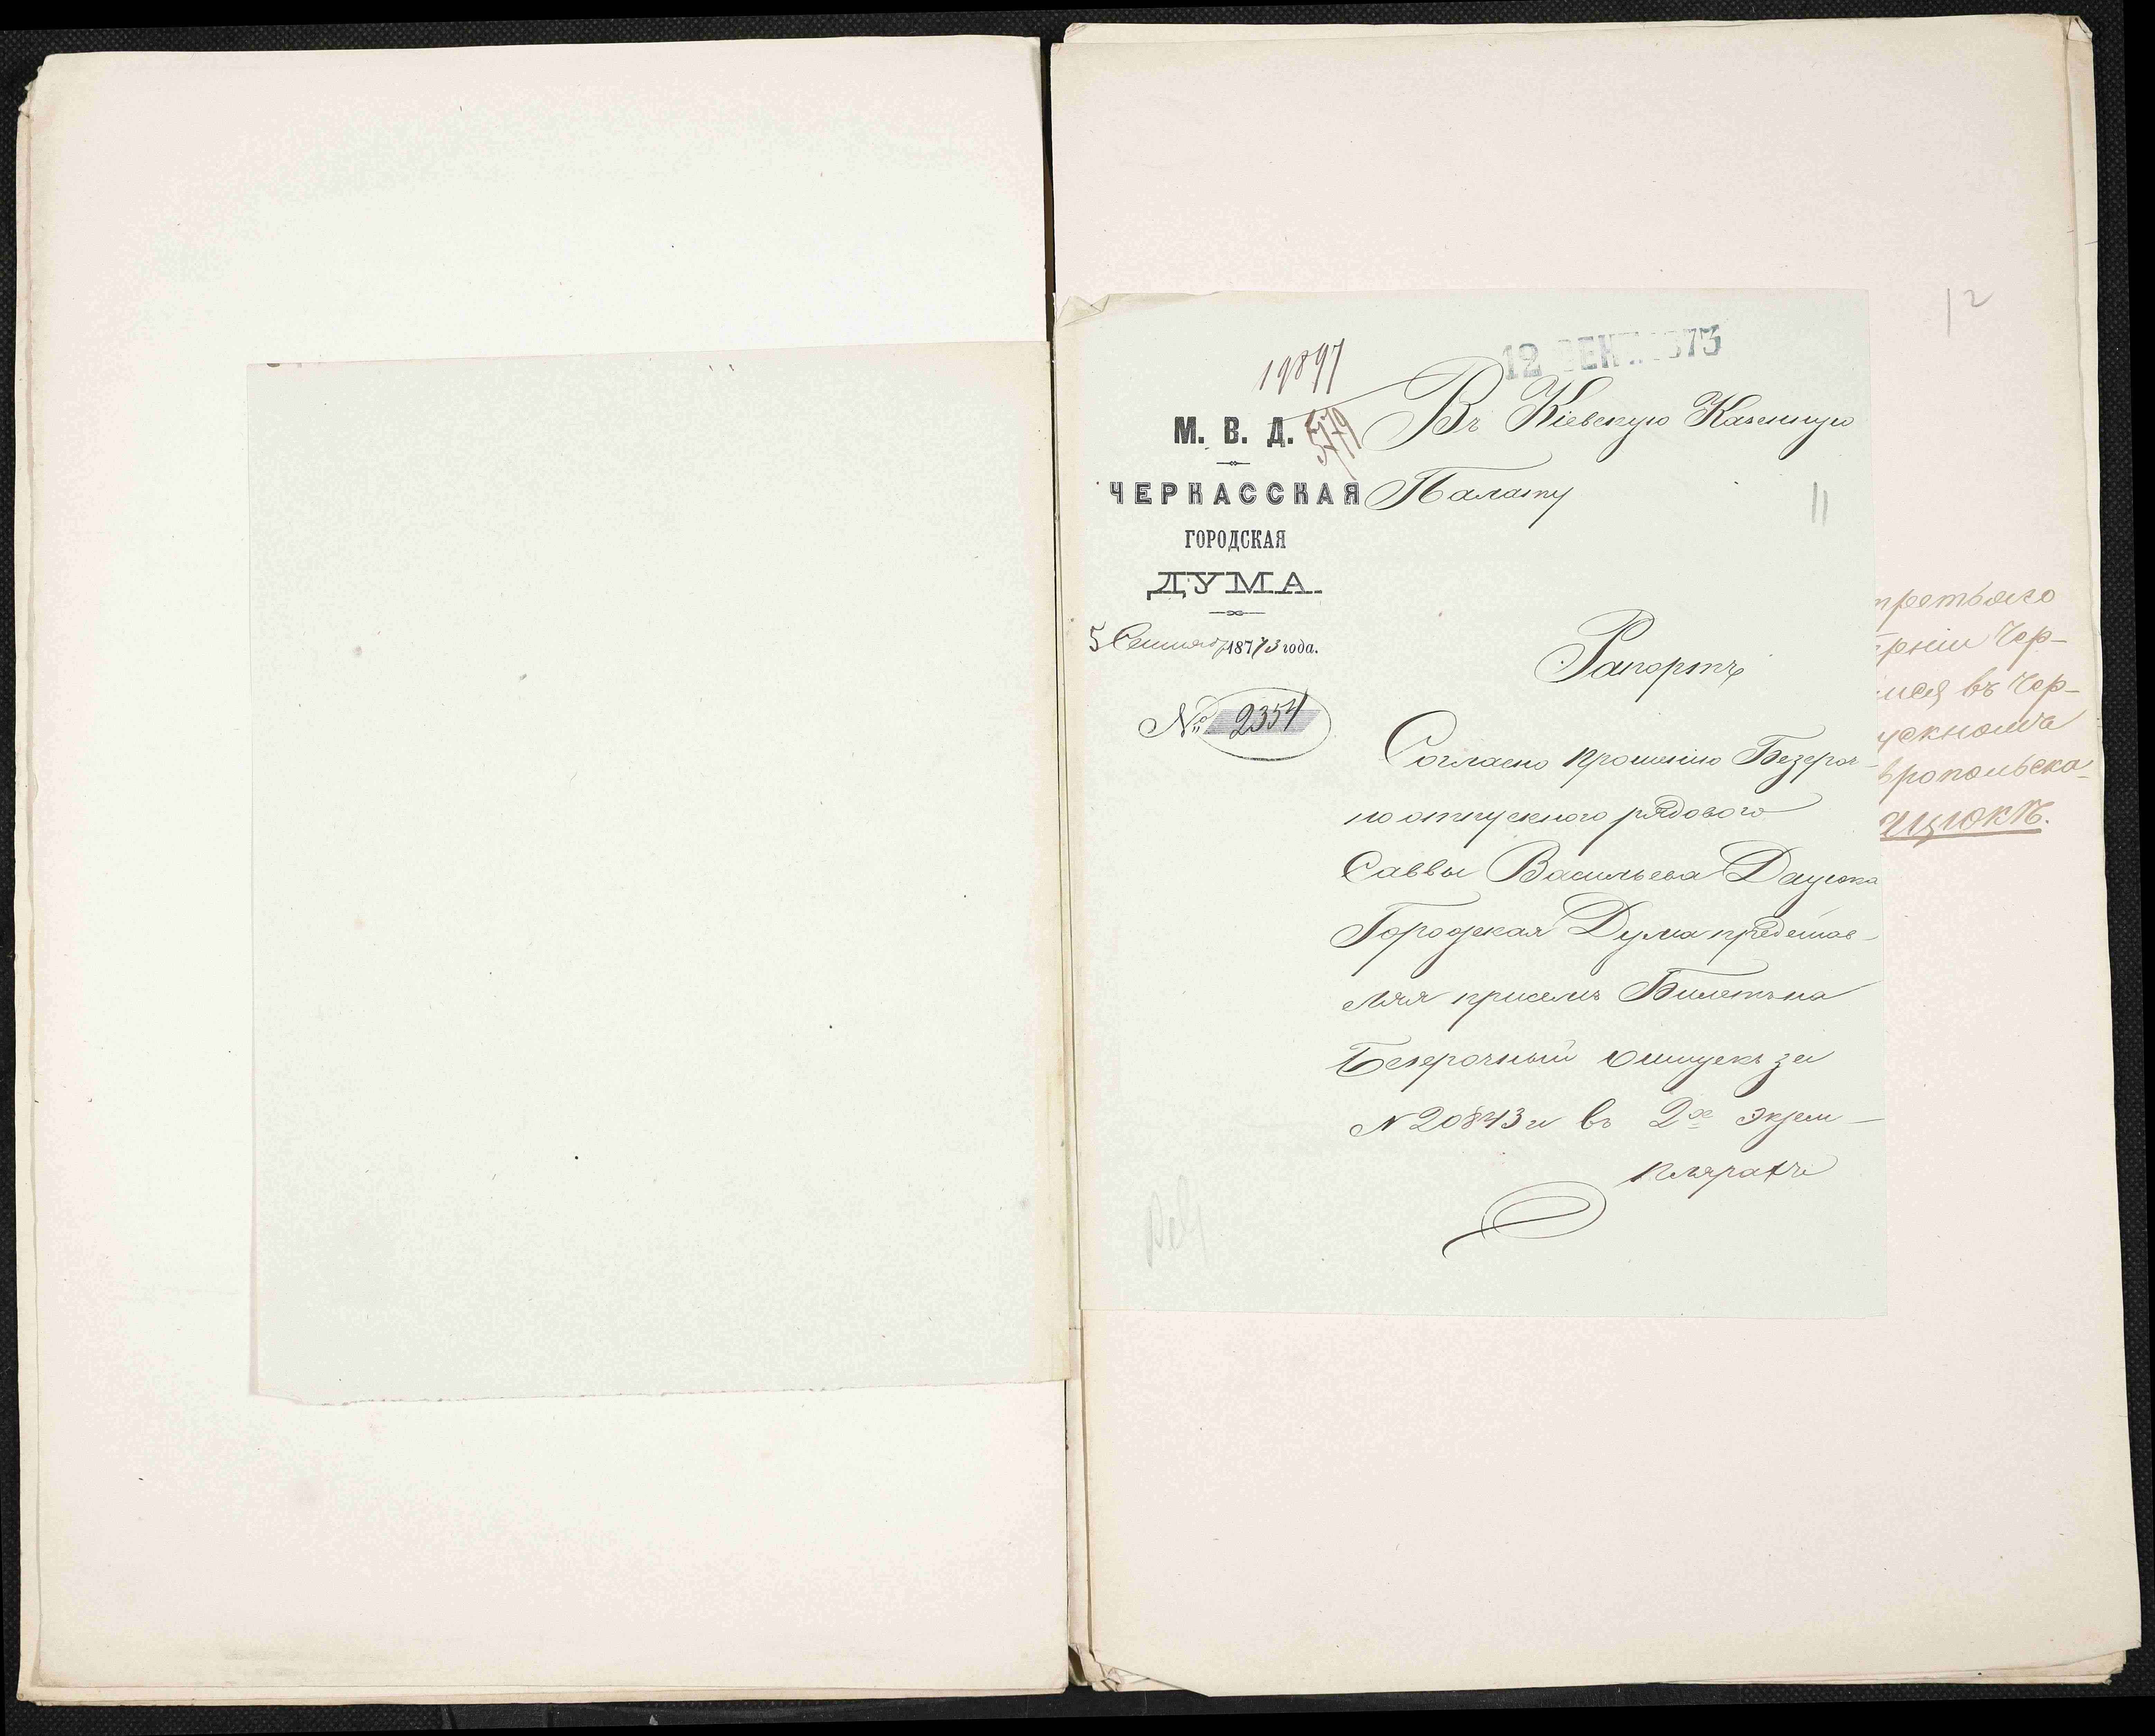 12
12 СЕНТ. 1873
19897
5779
М. В. Д.
ЧЕРКАССКАЯ
ГОРОДСКАЯ
ДУМА.
5 Сентяб 1873 года.
№ 2354
Въ Кіевскую Казенную
Палату
11
Рапортъ
Согласно прошенію Безсроч-
но отпускного рядового
Саввы Васильева Дацюка
Городская Дума представ-
ляя присемъ Билетъ на
Безсрочный отпускъ за
N 20843 и въ 2хъ экзем-
плярахъ
третьяго
ерніи Чер-
ися въ Чер-
ускномъ
вропольска-
ацюкъ.